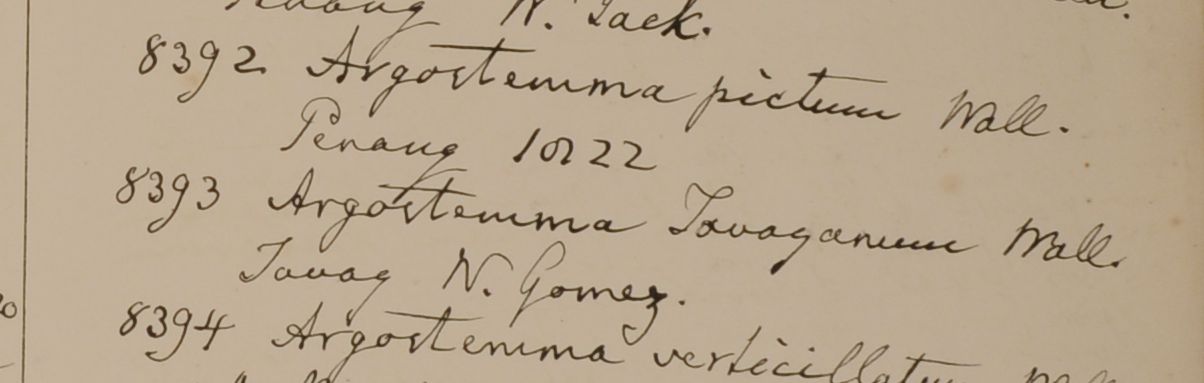 Penang W. Jack.
8392. Argostemma pictum Wall.
Penang 1822
8393 Argostemma Tavoyanum Wall.
Tavoy W. Gomez.
8394 Argostemma verticillatum